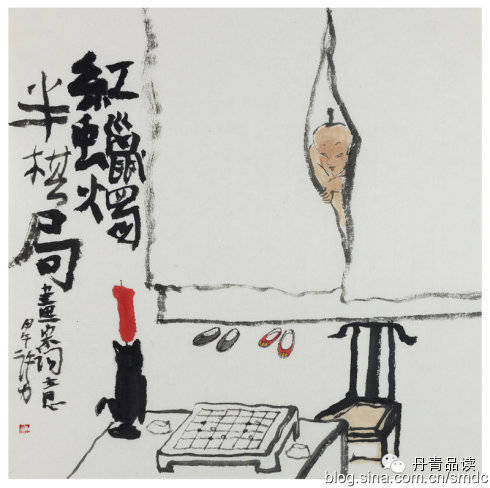 紅蠟燭
半棋局
畫宋词意
甲午
丹青品读
blog.sina.com.cn/smdc